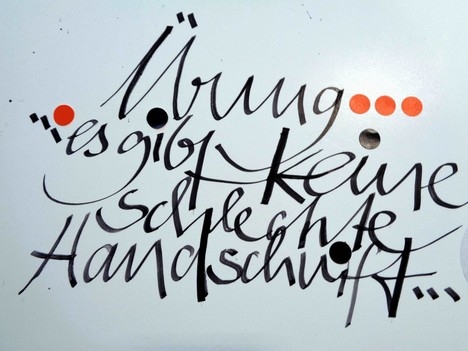 Übung...
"es gibt keine
schlechte
Handschrift..."